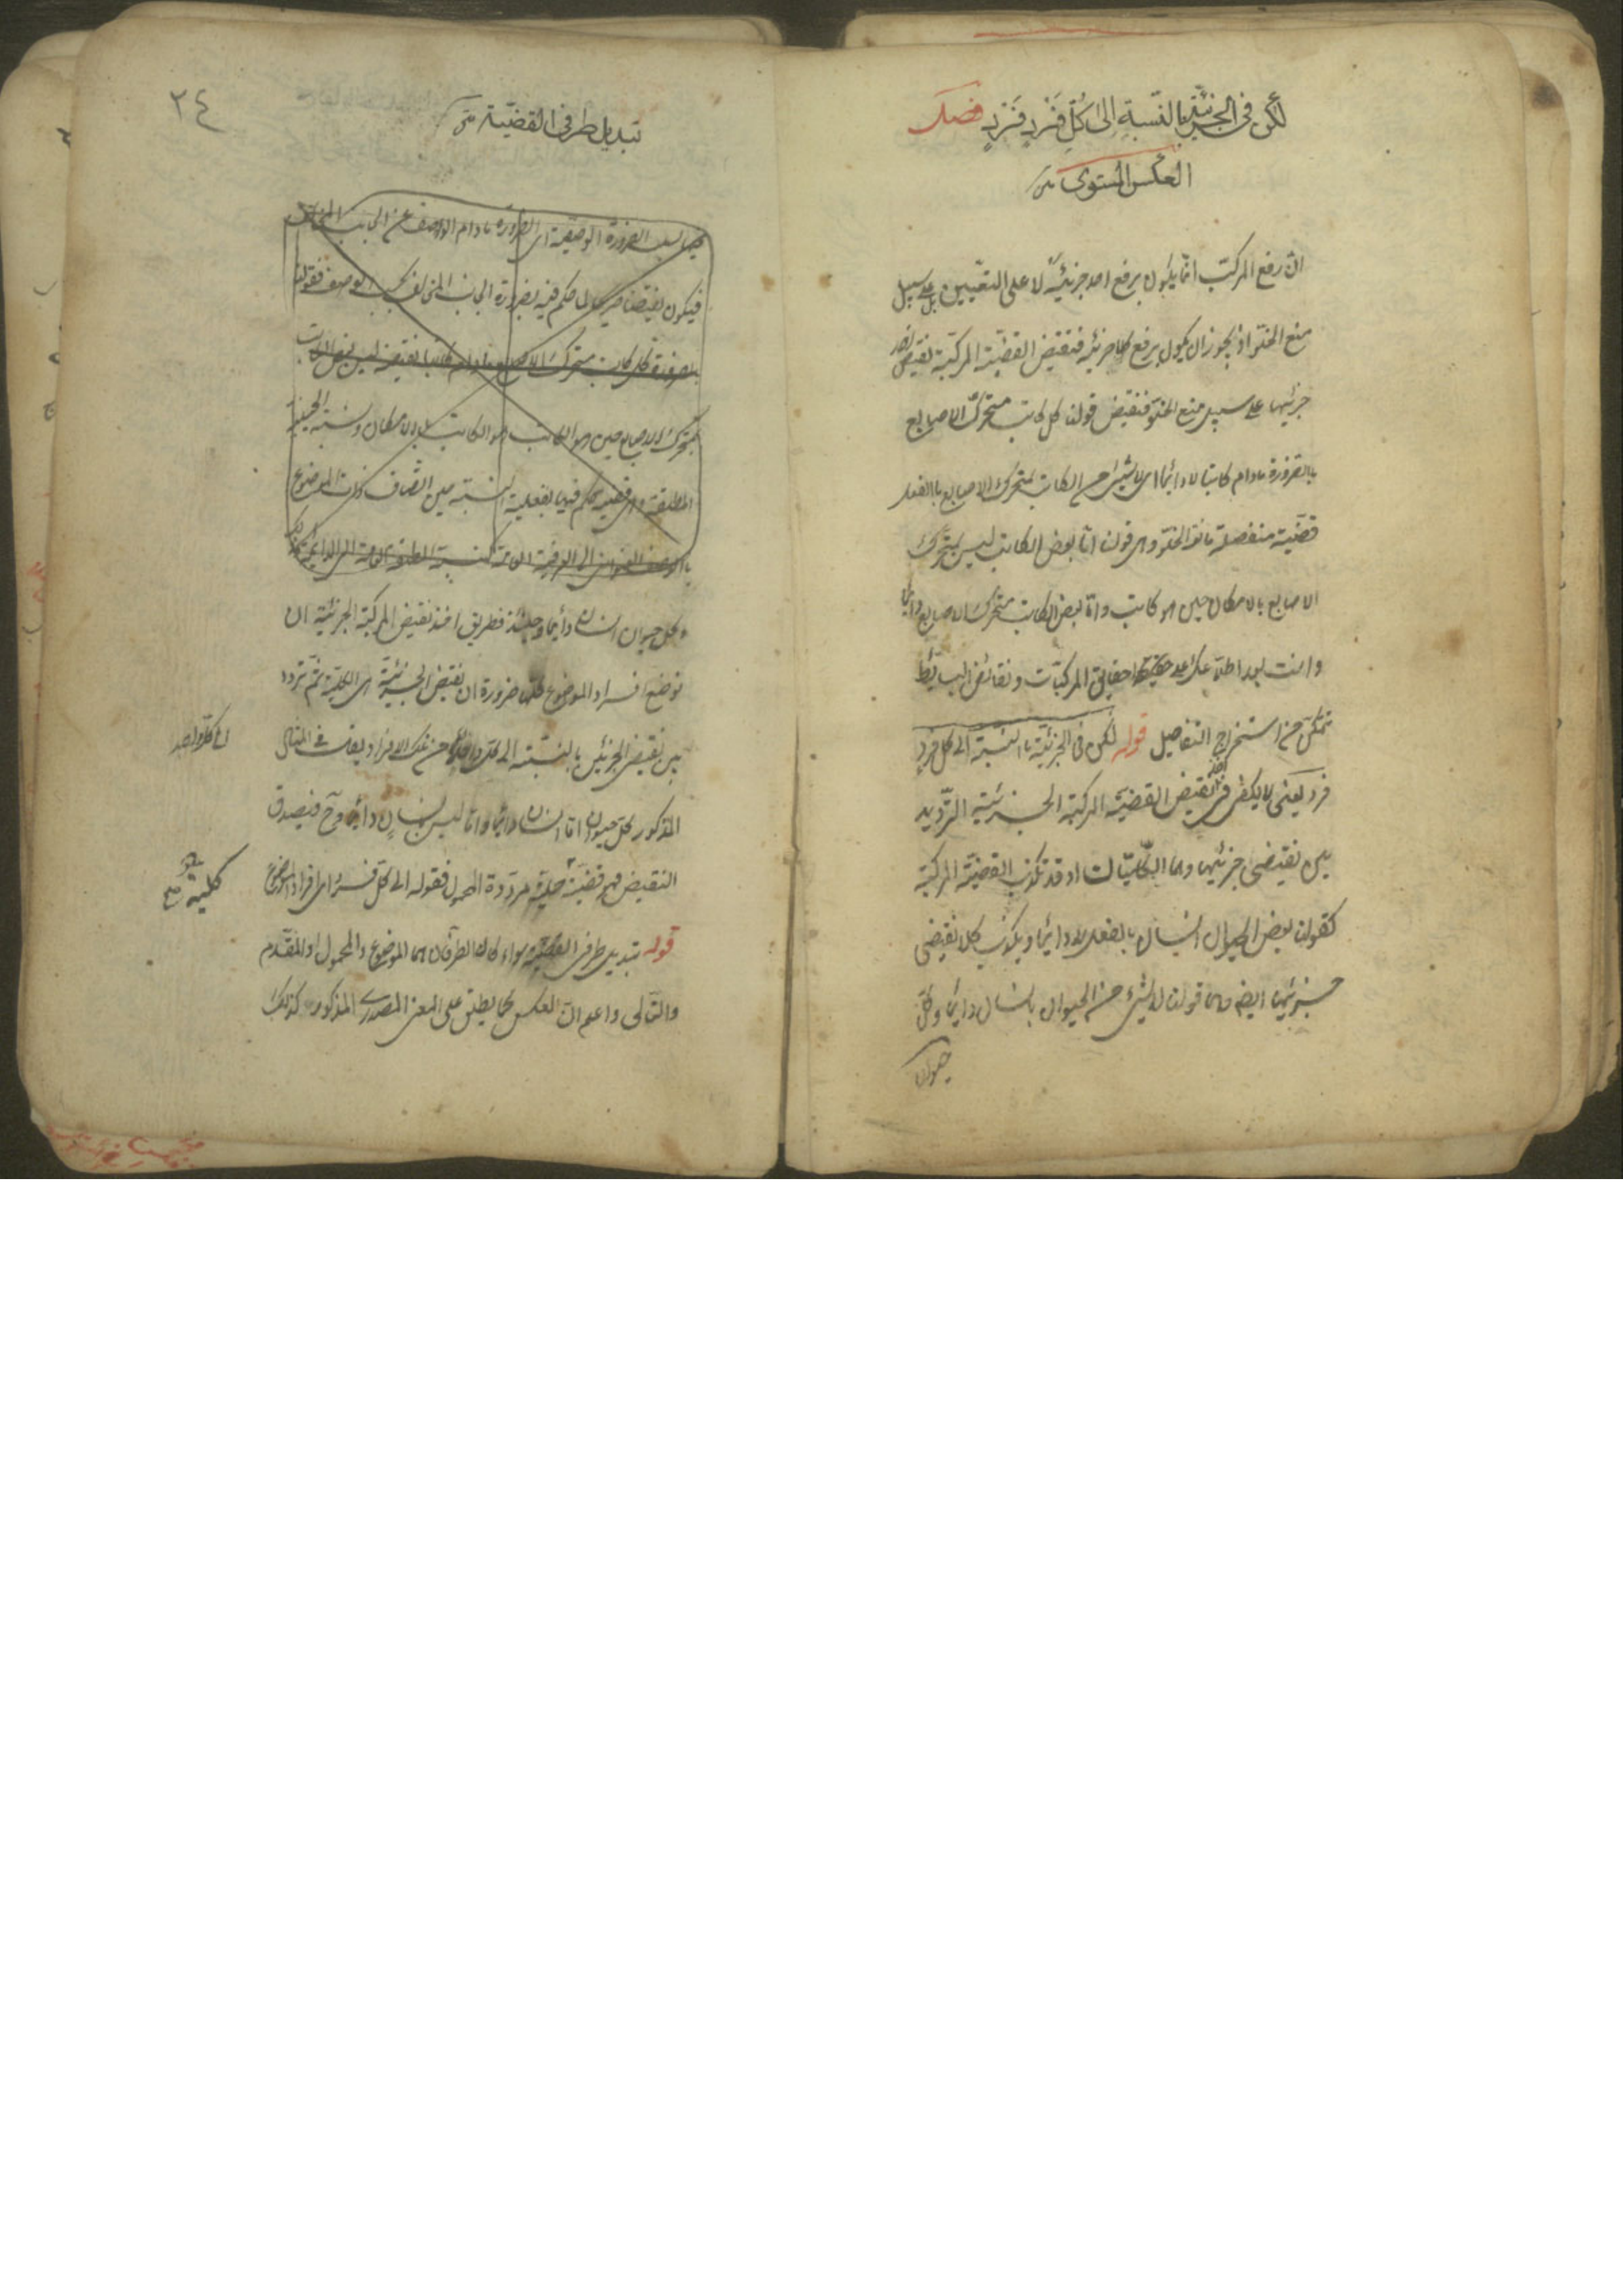 لكن فى الجزئيّة بالنّسبة الى كلّ فَرْدٍ فَرْدٍ فصل
العكس المستوى
انّ رفع المركّب انّما يكون برفع احد جزئيه لا على التعيين بل على سبيل
منع الخلو اذ يجوز ان يكون برفع كلا جزئيه فنقيض القضيّة المركّبة نقيض احد
جزئيها على سبيل منع الخلو فنقيض قولنا كل كاتب متحرّك الاصابع
بالضرورة مادام كاتبا لا دائما اى لا شيئ من الكاتب بمتحرك الاصابع بالفعل
قضيّة منفصلة مانعة الخلوّ وهى قولنا امّا بعض الكاتب ليس بمتحرّك
الاصابع بالامكان حين هو كاتب وامّا بعض الكاتب متحرك الاصابع دائما
وانت بعد اطلاعك على حقايق المركّبات ونقائض البسايط
تتمكّن من استخراج التفاصيل قوله لكن فى الجزئيّة بالنسبة الى كل فرد
فرد يعنى لا يكفى فى اخذ نقيض القضيّة المركبة الجزئية التّرديد
بين نقيضى جزئيها وهما الكلّيتان اذ قد تكذب القضيّة المركبة
كقولنا بعض الحيوان انسان بالفعل لا دائما ويكذب كلا نقيضى
جزئيها ايضا وهما قولنا لا شيئ من الحيوان بانسان دائما وكلّ
حيوان
٢٤
تبديل طرفى القضيّة
فيها بسلب الضرورة الوصفية اى الضرورة مادام الوصف عن الجانب المخالف
فيكون نقيضا صريحا لما حكم فيه بضرورة الجانب المخالف بحسب الوصف فقولنا
بالضرورة كل كاتب متحرك الاصابع مادام كاتبا نقيضه ليس بعض الكاتب
بمتحرك الاصابع حين هو كاتب بالامكان ونسبة الحينية
المطلقة وهى قضية حكم فيها بفعلية النسبة حين اتّصاف ذات الموضوع
بالوصف العنوانى الى العرفية العامة كنسبة المطلقة العامة الى الدائمة
كل حيوان انسان دائما وحينئذ فطريق اخذ نقيض المركبة الجزئية ان
توضع افراد الموضوع كلّها ضرورة ان نقيض الجزئيّة هى الكلية ثم تردد
بين نقيضى الجزئين بالنسبة الى كلّ واحد من تلك الافراد فيقال فى المثال
اى كل واحد
المذكور كلّ حيوان امّا انسان دائما وامّا ليس بانسان دائما وح فيصدق
النقيض فهو قضيّة حملية مرددة المحمول فقوله الى كل فرد اى من افراد الموضوع
كلية
قوله تبديل طرفى القضيّة سواء كان الطرفان هما الموضوع والمحمول او المقدّم
والتّالى واعلم انّ العكس كما يطلق على المعنى المصدرى المذكور كذلك